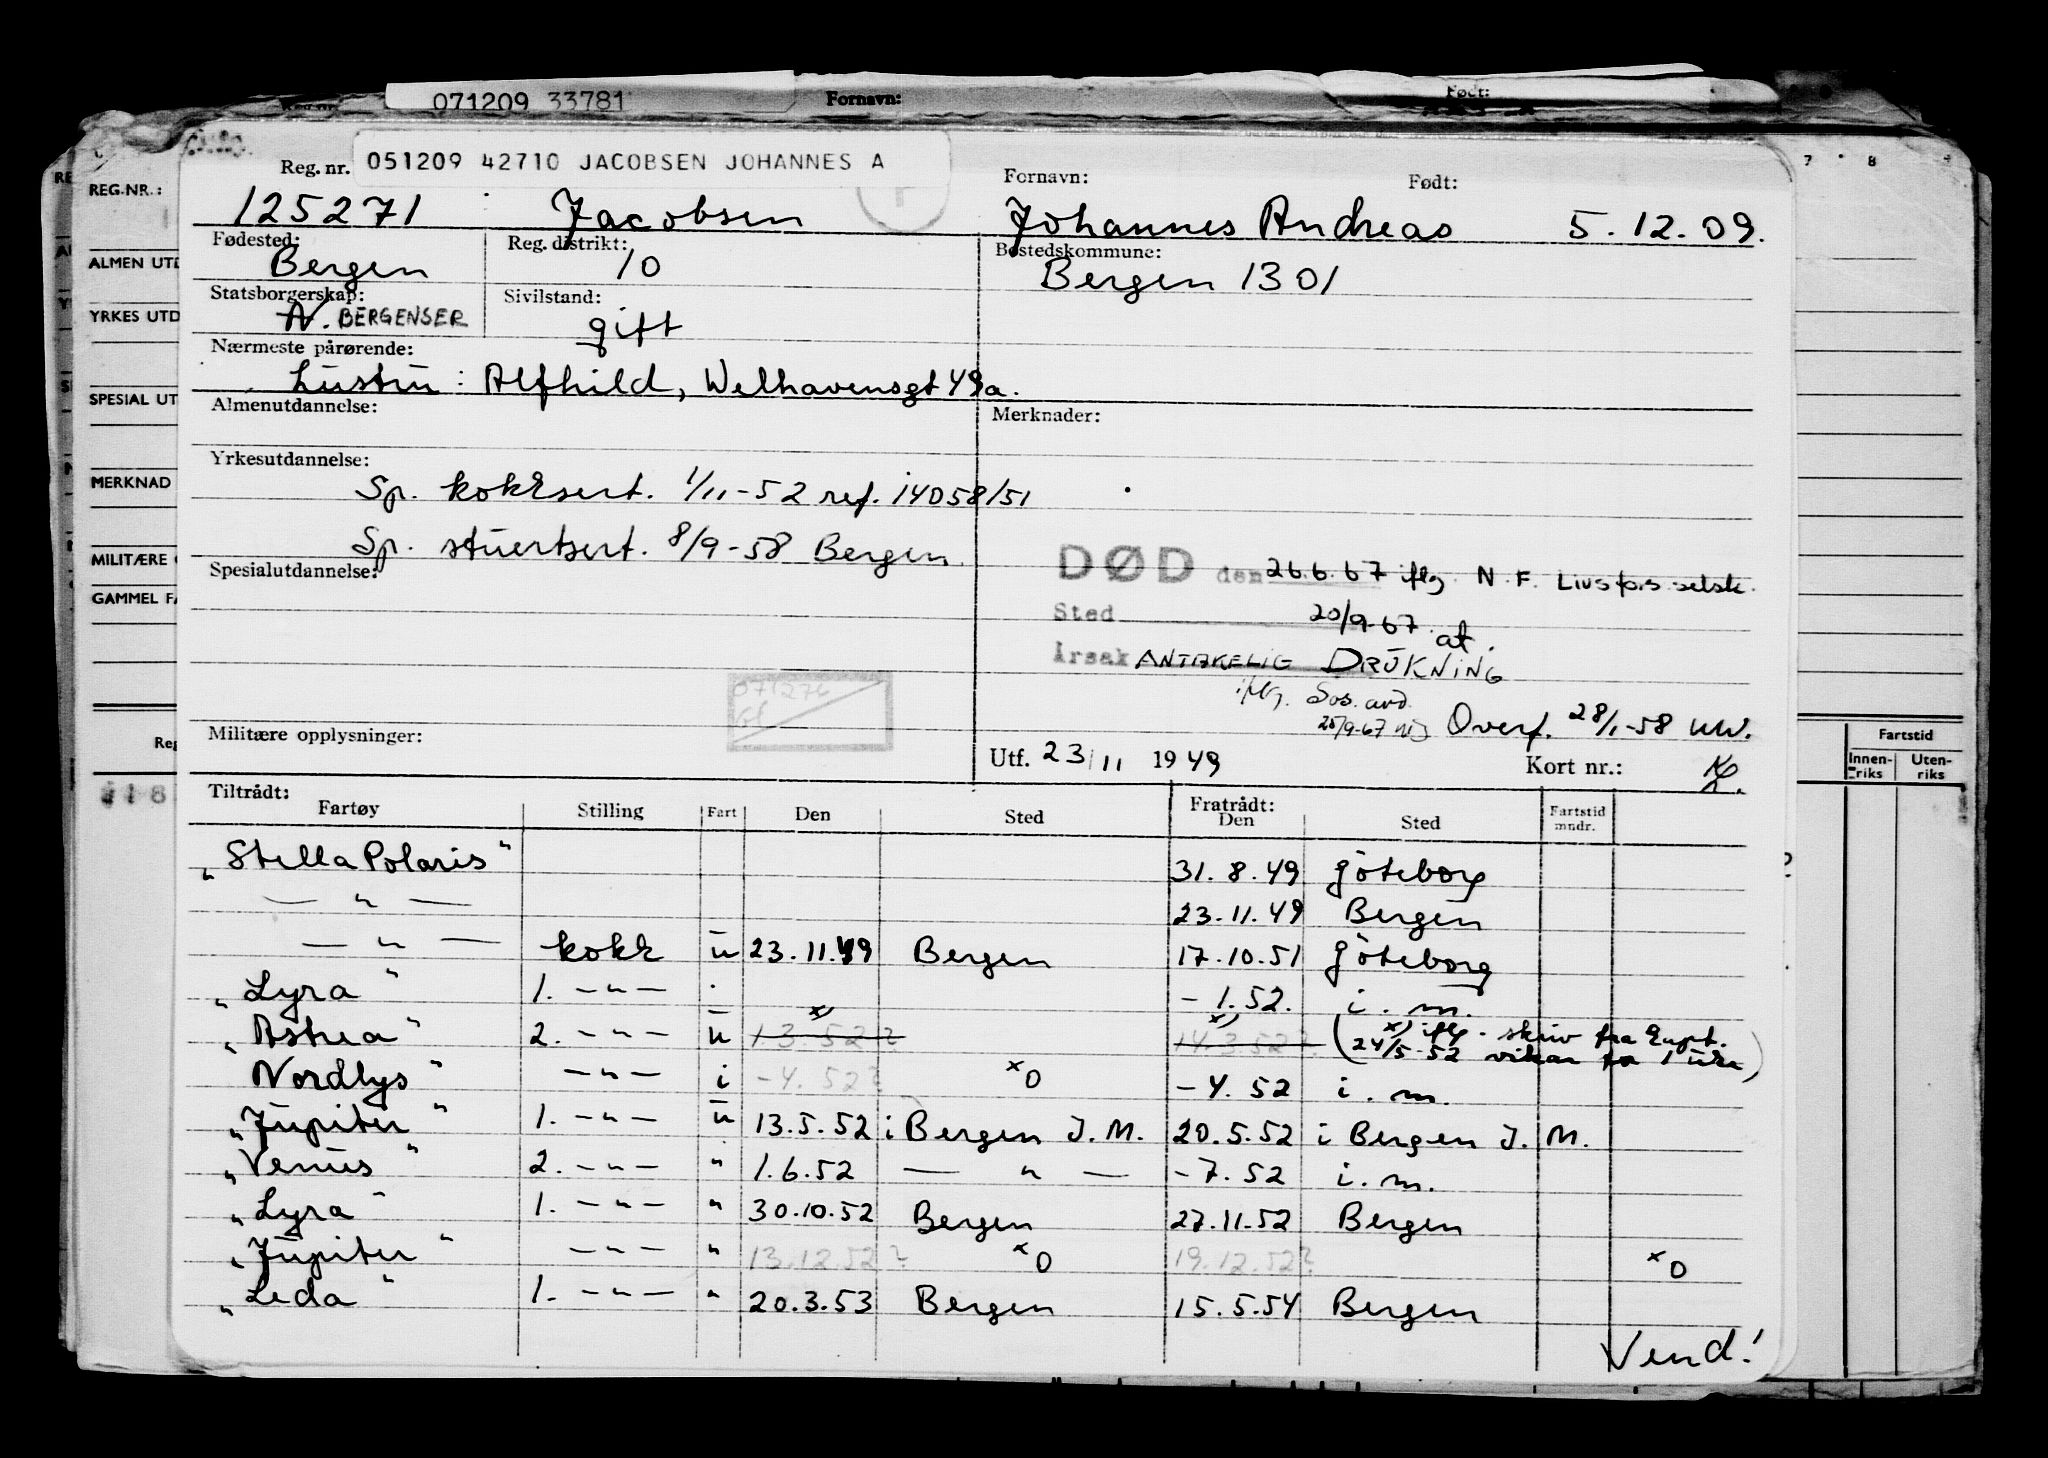 071209 33781 Fornavn: Født:
REG.NR.:
ALMEN UTD
YRKES UTD
SPECIAL UT
MERKNAD
MILITÆRE
GAMMEL FA
7 8
Fartstid
Innen-riks Uten-riks
Reg. nr. 051209 42710 JACOBSEN JOHANNES A Fornavn: Født:
125271 Jacobsen Johannes Andreas 5.12.09.
Fødested: Reg. distrikt: Bostedskommune:
Bergen 10 Bergen 1301
Statsborgerskap: Sivilstand:
N. BERGENSER gift
Nærmeste pårørende:
Hustru: Alfhild, Welhavensgt 49a.
Almenutdannelse: Merknader:
Yrkesutdannelse:
Sp. kokksert. 1/11-52 ref. 14058/51
Sp. stuertsert. 8/9-58 Bergen
Spesialutdannelse:
DØD den 26.6.67 iflg. N.F. Livsfors.selsk.
Sted 20/9-67. at.
Årsak ANTAKELIG DRUKNING
iflg. Sos. avd.
Overf. 28/1-58 UW.
071276
Militære opplysninger: Utf. 23/11 1949 Kort nr.:
Tiltrådt: Fratrådt:
Fartøy Stilling Fart Den Sted Den Sted Fartstid mndr.
"Stella Polaris" 31.8.49 Göteborg
— " — 23.11.49 Bergen
— " — kokk u 23.11.49 Bergen 17.10.51 Göteborg
"Lyra" 1. — " — - 1.52. i. m.
"Astrea" 2. — " — u x) 1 3. 52? x) 14.3.52? (x) iflg. skriv fra Expt. 24/5-52 vikar på 1 uke)
Nordlys" — " — i -4. 52? x0 -4. 52 i. m.
"Jupiter" 1. — " — u 13.5.52 i Bergen I.M. 20.5.52 i Bergen I.M.
"Venus" 2. — " — " 1.6.52 — " — -7. 52 i. m.
"Lyra" 1. — " — " 30.10.52 Bergen 27.11.52 Bergen
"Jupiter" — " — " 13.12.52? x0 19.12.52? x0
"Leda" 1. — " — " 20.3.53 Bergen 15.5.54 Bergen
Vend!